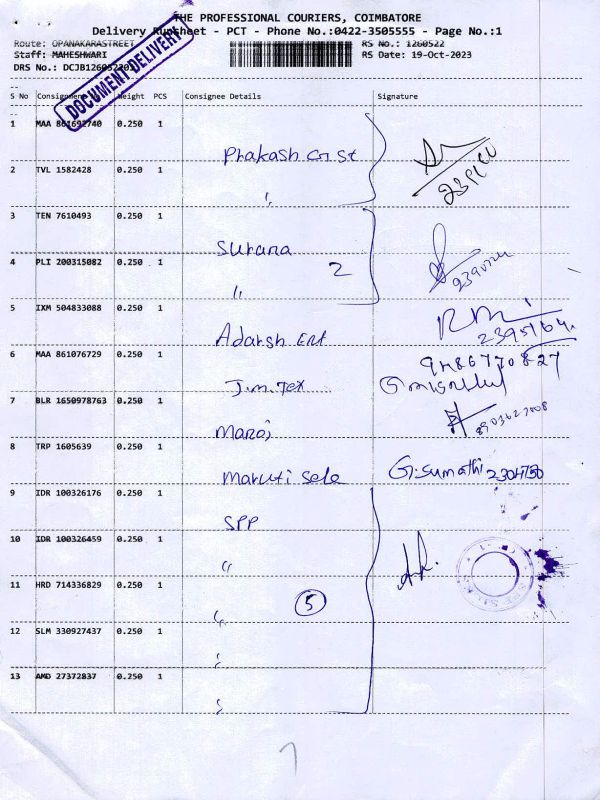 THE PROFESSIONAL COURIERS, COIMBATORE
Delivery Runsheet - PCT - Phone No.:0422-3505555 - Page No.:1
Route: OPANAKARASTREET RS No.: 1260522
Staff: MAHESHWARI RS Date: 19-Oct-2023
DRS No.: DCJB1260522
DOCUMENT DELIVERY
S No Consignment No Weight PCS Consignee Details Signature
1 MAA 861692740 0.250 1
Prakash G.St
2 TVL 1582428 0.250 1
"
3 TEN 7610493 0.250 1
Surana
4 PLI 200315082 0.250 1 2
"
5 IXM 504833088 0.250 1
Adarsh Ent
6 MAA 861076729 0.250 1 9486770827
J.M.Tex
7 BLR 1650978763 0.250 1
Manoj
8 TRP 1605639 0.250 1
Maruti Sele G.Sumathi 2304750
9 IDR 100326176 0.250 1
SPP
10 IDR 100326459 0.250 1
"
11 HRD 714336829 0.250 1 5
"
12 SLM 330927437 0.250 1
"
13 AMD 27372837 0.250 1
"